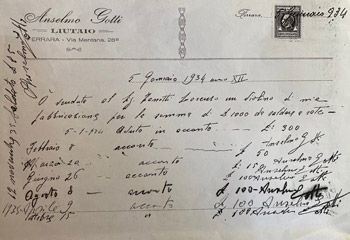 Anselmo Gotti
LIUTAIO
FERRARA - Via Mentana, 28
Ferrara, Gennaio 934
5 Gennaio 1934 anno XII
O venduto al Sig. Lorenzo un violino di mia
fabbricazione per la somma di £ 1000 da saldare a rate
5-1-934 Acconto £: 300
Anselmo Gotti
Febbraio 8 acconto £ 50
Marzo 20 acconto £ 150 Anselmo Gotti
Giugno 26 acconto £ 100 Anselmo Gotti
Agosto 8 acconto £ 100 Anselmo Gotti
1935 Aprile 9 acconto £ 100 Anselmo Gotti
Ottobre 15 £ 100 Anselmo Gotti
12 novembre 35 Saldato £ 85
Anselmo Gotti